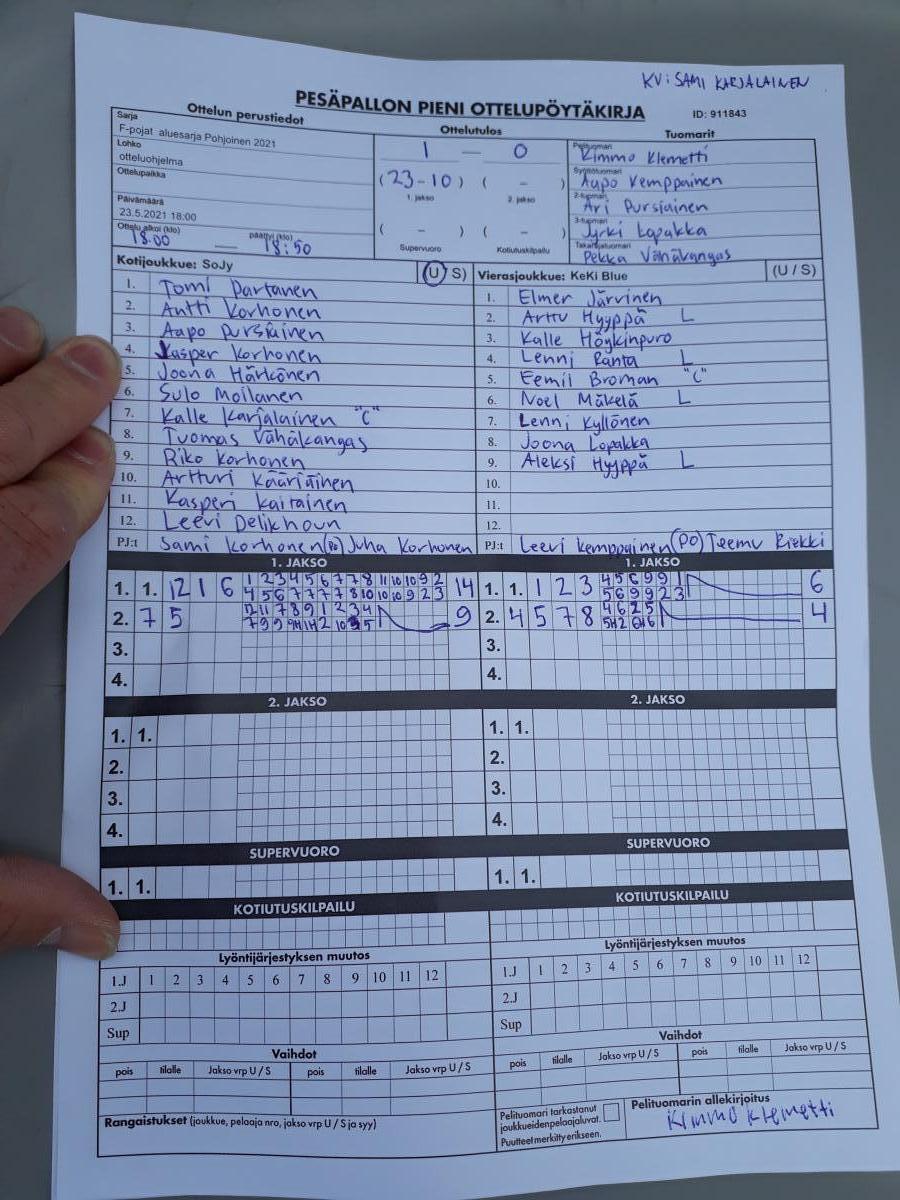 KV: SAMI KARJALAINEN
PESÄPALLON PIENI OTTELUPÖYTÄKIRJA
ID: 911843
Ottelun perustiedot
Ottelutulos
Tuomarit
Sarja
F-pojat aluesarja Pohjoinen 2021
Lohko
otteluohjelma
Ottelupaikka
Päivämäärä
23.5.2021 18:00
Ottelu alkoi (klo) päättyi (klo)
18:00 — 18:50
1 — 0
(23-10) ( - )
1. jakso 2. jakso
( - ) ( - )
Supervuoro Kotiutuskilpailu
Pelituomari
Kimmo Klemetti
Syöttötuomari
Aapo Kemppainen
2-tuomari
Ari Pursiainen
3-tuomari
Jyrki Lopakka
Takarajatuomari
Pekka Vähäkangas
Kotijoukkue: SoJy (U/S)
1. Tomi Partanen
2. Antti Korhonen
3. Aapo Pursiainen
4. Kasper Korhonen
5. Joona Härkönen
6. Sulo Moilanen
7. Kalle Karjalainen "C"
8. Tuomas Vähäkangas
9. Riko Korhonen
10. Artturi Kääriäinen
11. Kasperi Kaitainen
12. Leevi Delikhoun
PJ:t Sami Korhonen (PO) Juha Korhonen
Vierasjoukkue: KeKi Blue (U / S)
1. Elmer Järvinen
2. Arttu Hyyppä L
3. Kalle Höykinpuro
4. Lenni Ranta L
5. Eemil Broman "C"
6. Noel Mäkelä L
7. Lenni Kyllönen
8. Joona Lopakka
9. Aleksi Hyyppä L
10.
11.
12.
PJ:t Leevi Kemppainen (PO) Teemu Riekki
1. JAKSO
1. 1. 12 1 6 1 2 3 4 5 6 7 7 8 11 10 10 9 2 14
4 5 6 7 7 7 7 8 10 10 10 9 2 3
2. 7 5 9
3.
4.
1. JAKSO
1. 1. 1 2 3 4 5 6 9 9 1 6
5 6 9 9 2 3
2. 4 5 7 8 4 6 2 5 4
3.
4.
2. JAKSO
1. 1.
2.
3.
4.
2. JAKSO
1. 1.
2.
3.
4.
SUPERVUORO
1. 1.
SUPERVUORO
1. 1.
KOTIUTUSKILPAILU
KOTIUTUSKILPAILU
Lyöntijärjestyksen muutos
1.J 1 2 3 4 5 6 7 8 9 10 11 12
2.J
Sup
Lyöntijärjestyksen muutos
1.J 1 2 3 4 5 6 7 8 9 10 11 12
2.J
Sup
Vaihdot
pois tilalle Jakso vrp U / S pois tilalle Jakso vrp U / S
Vaihdot
pois tilalle Jakso vrp U / S pois tilalle Jakso vrp U / S
Rangaistukset (joukkue, pelaaja nro, jakso vrp U / S ja syy)
Pelituomari tarkastanut
joukkueidenpelaajaluvat.
Puutteet merkitty erikseen.
Pelituomarin allekirjoitus
Kimmo Klemetti